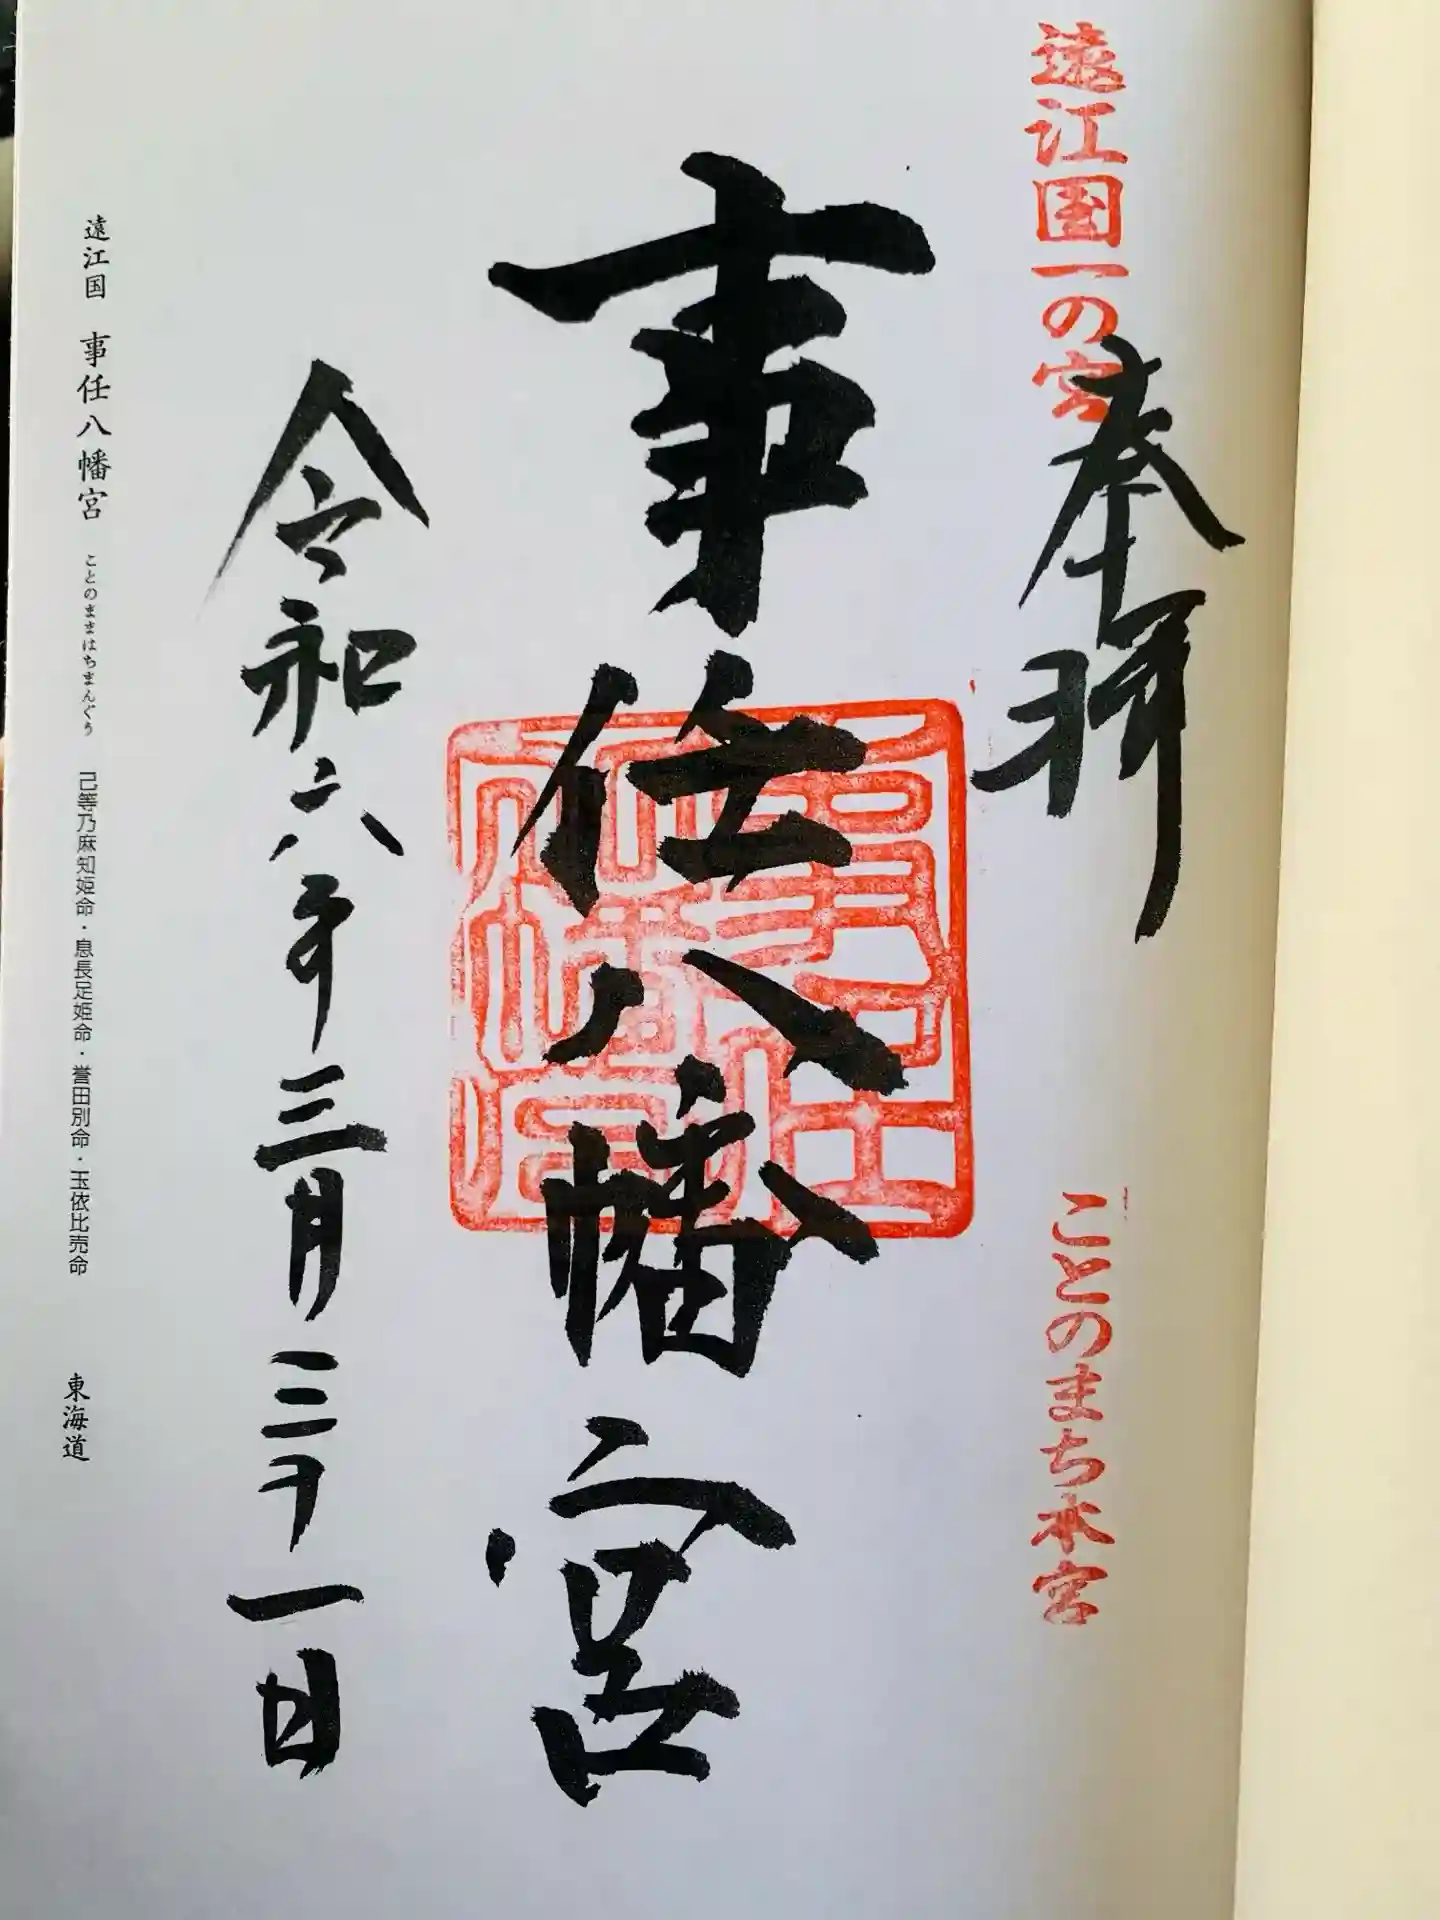 遠江国一の宮
奉拝
ことのまち本宮
事任八幡宮
事任
八幡宮
令和六年三月三十一日
遠江国 事任八幡宮 ことのままはちまんぐう 己等乃麻知姫命・息長足姫命・誉田別命・玉依比売命 東海道